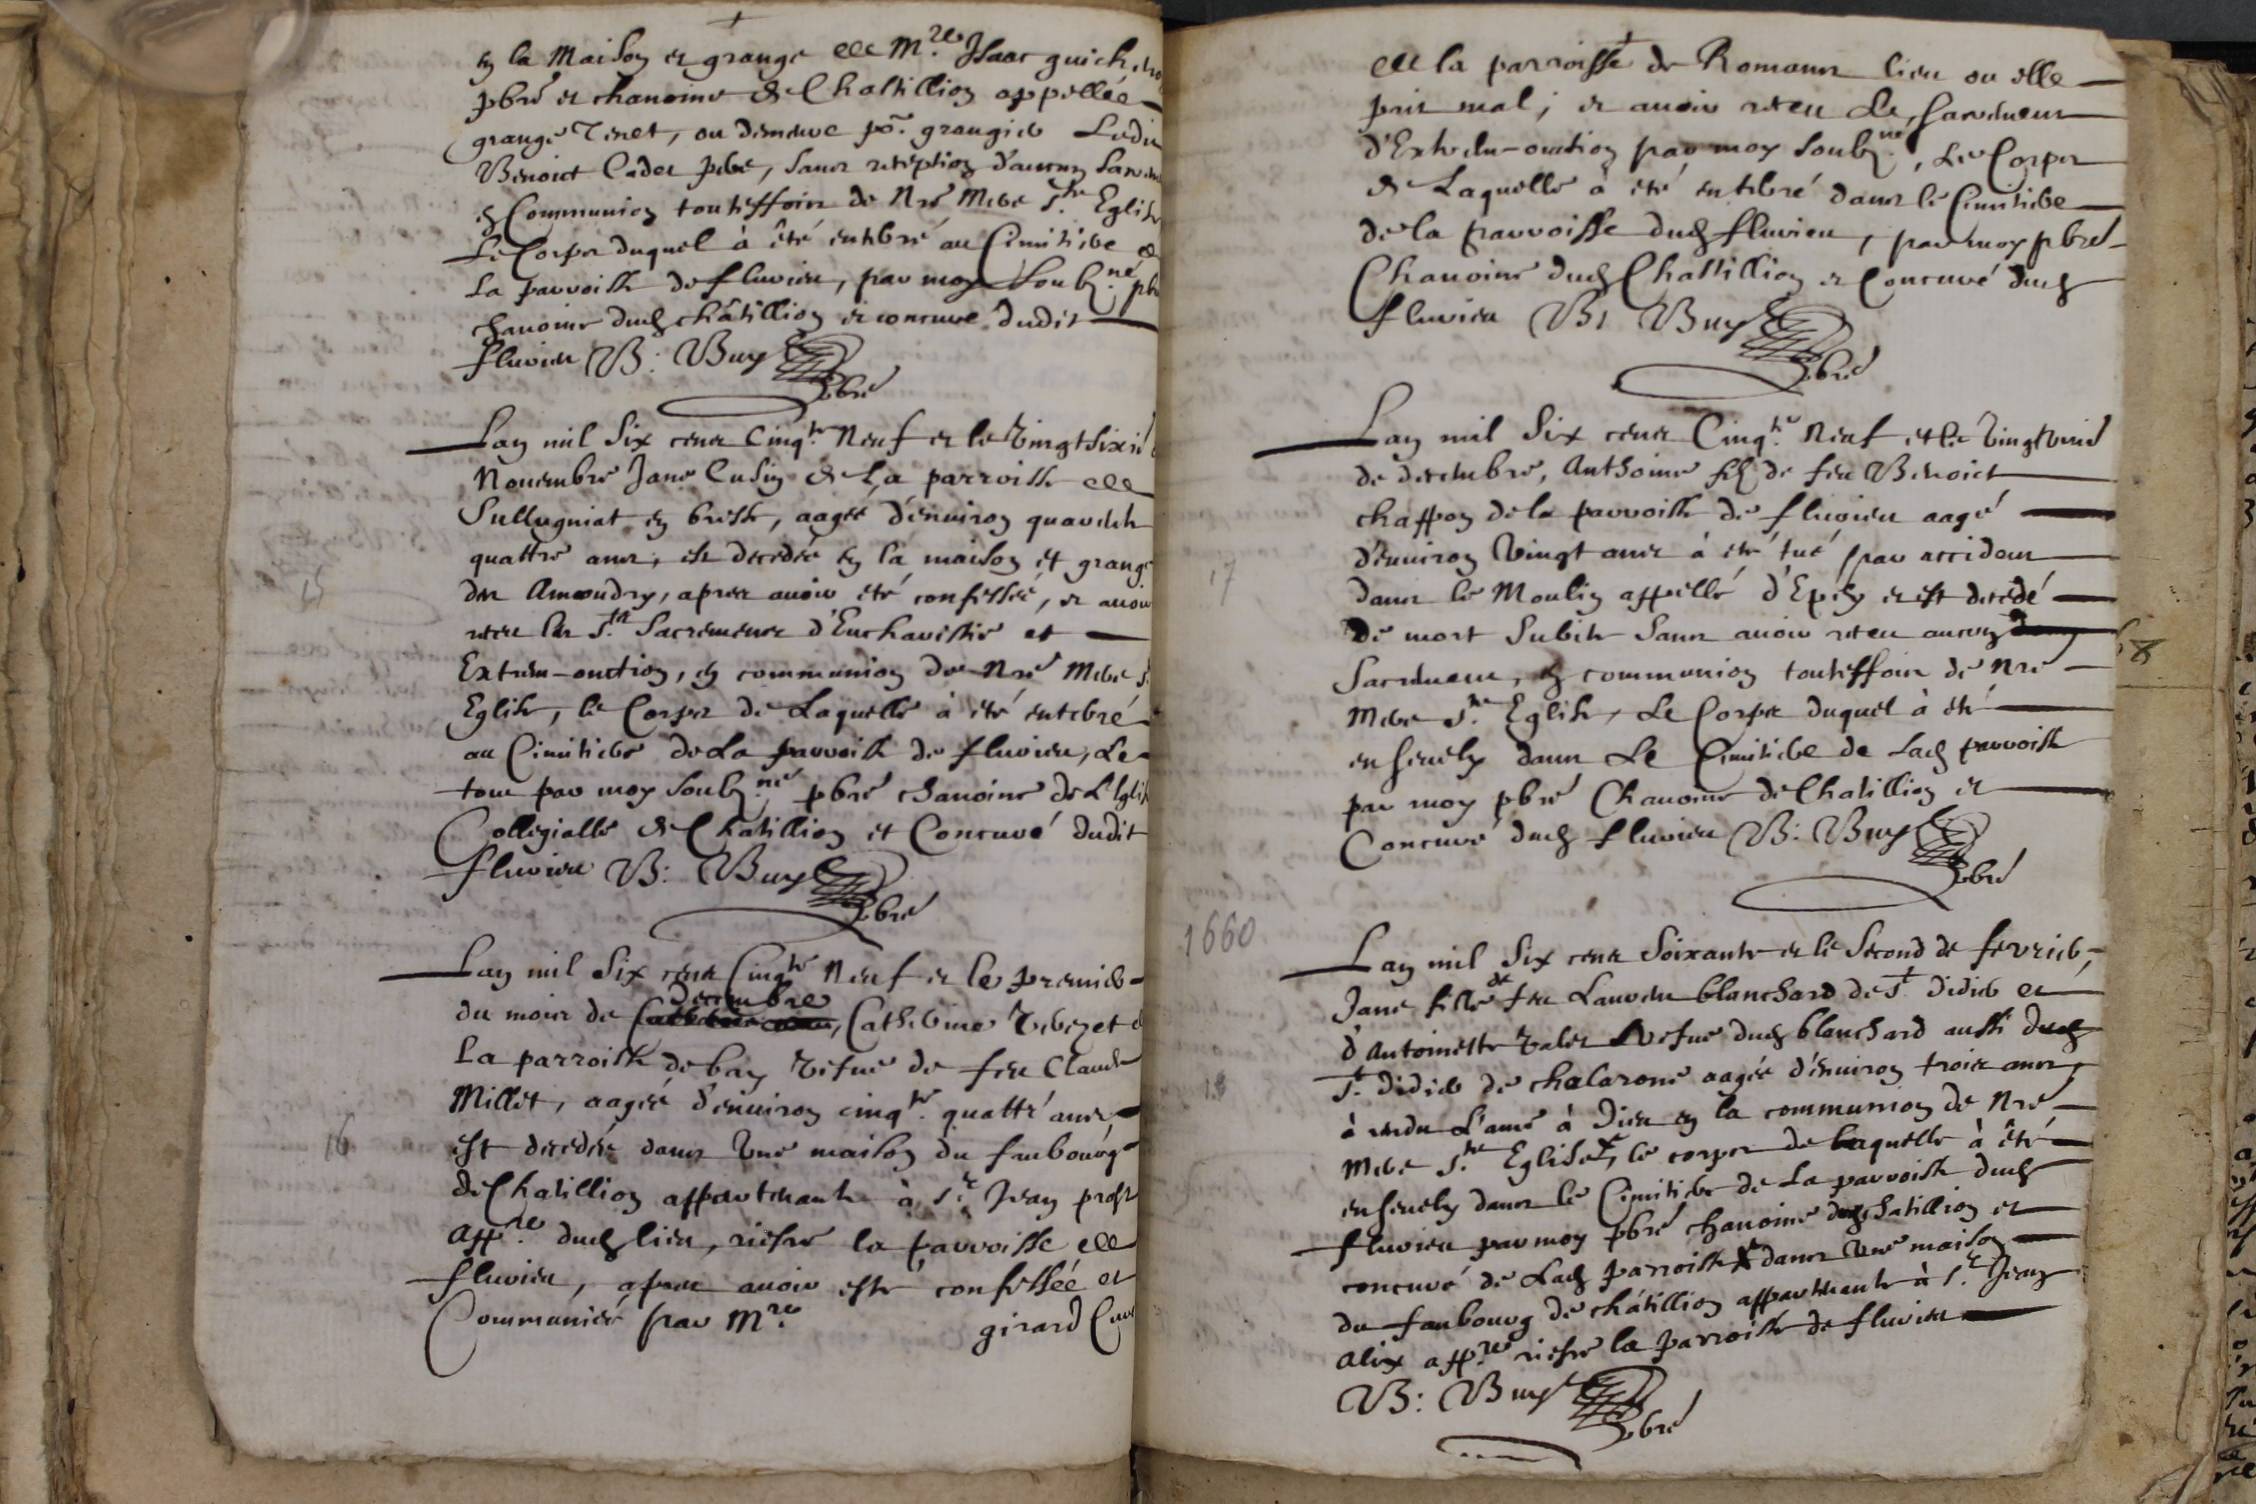 en la Maison et grange de M.re Isaac guichen
pbre et chanoine de Chastillion appellée
grange Tenet, ou demeure po.r grangier Ledit
Benoict Cadet pere, sans reception d'aucun Sacrem
en Communion touteffois de Nre Mere S.te Eglise
Le Corps duquel à été enterré au Cimitiere de
La parroisse de fluvieu, par moy soubz.né pbr
chanoine dud. châtillion et concuré dudit
fluvieu B: Buy
pbre
Lan mil Six cens Cinq.te Neuf et le Vingtsixie
Novembre Jane Cusin de La parroisse de
Sullugniat en bresse, aagée d'environ quarante
quattre ans, est decedée en la maison et grange
des Amondry, apres avoir été confessée, et avoir
receu les S.ts Sacrements d'Eucharistie et
Extreme-onction, en communion de Nre Mere S.
Eglise, le Corps de Laquelle à été enterré
au Cimitiere de La parroisse de fluvieu, Le
tout par moy soubz.né pbre chanoine de L'Eglise
Collegialle de Chatillion et Concuré dudit
fluvieu B: Buy
pbre
Lan mil Six cens Cinq.te Neuf et le premier
decembre
du mois de , Catherine Veyzet de
La parroisse de bey vefve de feu Claude
Millet, aagée d'environ cinq.te quattre ans,
16
est decedée dans Une maison du fauboug
de Chatillion appartenante à S.r Jean prost
app.re dud. lieu, riesre la parroisse de
fluvieu, apres avoir esté confessée et
Communiée par M.re girard Curé
de la parroisse de Romans lieu ou elle
prit mal; et avoir receu Le Sacrement
d'Extreme-onction par moy soubz.né, Le Corps
de Laquelle à été enterré dans le Cimitiere
de la parroisse dud. fluvieu, par moy pbre
Chanoine dud. Chastillion et Concuré dud.
fluvieu B: Buy
pbre
Lan mil Six cens Cinq.te Neuf et le Vingt
de decembre, Anthoine filz de feu Benoict
chappon de la parroisse de fluvieu aagé
d'environ Vingt ans à été tué par accident
17
dans le Moulin appellé d'Epey et est decedé
de mort Subite Sans avoir receu aucun
68
Sacrement, en communion touteffois de Nre
Mere S.te Eglise, Le Corps duquel à été
ensevely dans Le Cimitiere de Lad. parroisse
par moy pbre Chanoine de Chatillion et
Concuré dud. fluvieu B: Buy
pbre
1660
Lan mil Six cens Soixante et le Second de fevrier,
Jane fille de feu Laurent blanchard de S.t Didier et
d'Antoinette Valet vefve dud. blanchard aussi dud.
S.t Didier de chalarone aagée d'environ trois ans,
18
à rendu L'ame à Dieu en la communion de Nre
Mere S.te Eglise, le corps de laquelle à été
ensevely dans le Cimitiere de La parroisse dud.
fluvieu par moy pbre chanoine de chatillion et
concuré de Lad. parroisse dans Une maison
du faubourg de châtillion appartenante à S.r Jean
alix app.re riesre la parroisse de fluvieu
B: Buy
pbre